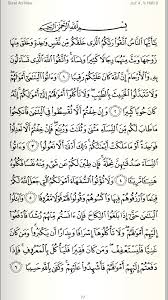 Surat An-Nisa Juz' 4,
بِسْمِ ٱللَّهِ ٱلرَّحْمَٰنِ ٱلرَّحِيمِ
يَٰٓأَيُّهَا ٱلنَّاسُ ٱتَّقُوا۟ رَبَّكُمُ ٱلَّذِى خَلَقَكُم مِّن نَّفْسٍ وَٰحِدَةٍ وَخَلَقَ مِنْهَا
زَوْجَهَا وَبَثَّ مِنْهُمَا رِجَالًا كَثِيرًا وَنِسَآءً وَٱتَّقُوا۟ ٱللَّهَ ٱلَّذِى تَسَآءَلُونَ
بِهِۦ وَٱلْأَرْحَامَ إِنَّ ٱللَّهَ كَانَ عَلَيْكُمْ رَقِيبًا ١ وَءَاتُوا۟ ٱلْيَتَٰمَىٰٓ أَمْوَٰلَهُمْ
وَلَا تَتَبَدَّلُوا۟ ٱلْخَبِيثَ بِٱلطَّيِّبِ وَلَا تَأْكُلُوٓا۟ أَمْوَٰلَهُمْ إِلَىٰٓ أَمْوَٰلِكُمْ إِنَّهُۥ
كَانَ حُوبًا كَبِيرًا ٢ وَإِنْ خِفْتُمْ أَلَّا تُقْسِطُوا۟ فِى ٱلْيَتَٰمَىٰ فَٱنكِحُوا۟
مَا طَابَ لَكُم مِّنَ ٱلنِّسَآءِ مَثْنَىٰ وَثُلَٰثَ وَرُبَٰعَ فَإِنْ خِفْتُمْ أَلَّا تَعْدِلُوا۟
فَوَٰحِدَةً أَوْ مَا مَلَكَتْ أَيْمَٰنُكُمْ ذَٰلِكَ أَدْنَىٰٓ أَلَّا تَعُولُوا۟ ٣ وَءَاتُوا۟ ٱلنِّسَآءَ
صَدُقَٰتِهِنَّ نِحْلَةً فَإِن طِبْنَ لَكُمْ عَن شَىْءٍ مِّنْهُ نَفْسًا فَكُلُوهُ
هَنِيٓـًٔا مَّرِيٓـًٔا ٤ وَلَا تُؤْتُوا۟ ٱلسُّفَهَآءَ أَمْوَٰلَكُمُ ٱلَّتِى جَعَلَ ٱللَّهُ لَكُمْ
قِيَٰمًا وَٱرْزُقُوهُمْ فِيهَا وَٱكْسُوهُمْ وَقُولُوا۟ لَهُمْ قَوْلًا مَّعْرُوفًا ٥
وَٱبْتَلُوا۟ ٱلْيَتَٰمَىٰ حَتَّىٰٓ إِذَا بَلَغُوا۟ ٱلنِّكَاحَ فَإِنْ ءَانَسْتُم مِّنْهُمْ رُشْدًا فَٱدْفَعُوٓا۟
إِلَيْهِمْ أَمْوَٰلَهُمْ وَلَا تَأْكُلُوهَآ إِسْرَافًا وَبِدَارًا أَن يَكْبَرُوا۟ وَمَن كَانَ
غَنِيًّا فَلْيَسْتَعْفِفْ وَمَن كَانَ فَقِيرًا فَلْيَأْكُلْ بِٱلْمَعْرُوفِ فَإِذَا
دَفَعْتُمْ إِلَيْهِمْ أَمْوَٰلَهُمْ فَأَشْهِدُوا۟ عَلَيْهِمْ وَكَفَىٰ بِٱللَّهِ حَسِيبًا ٦
77